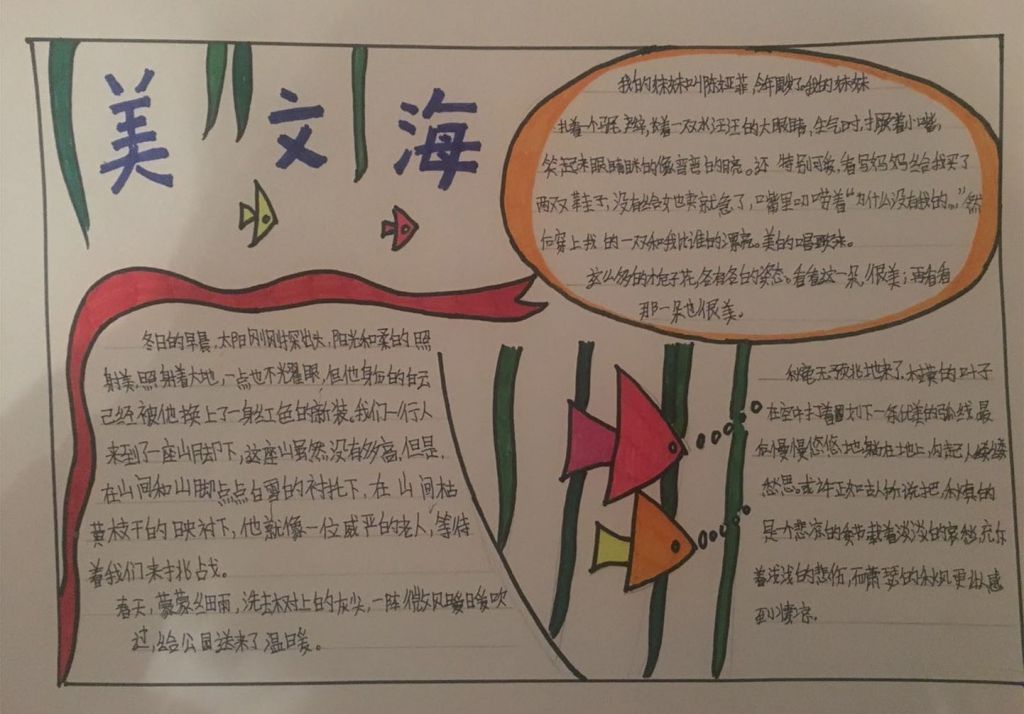 美文海
我的妹妹叫陈娅菲,今年4岁了。我的妹妹
扎着一个马尾辫,长着一双水汪汪的大眼睛,生气时,打尿着小嘴,
笑起来眼睛眯的像弯弯的月亮。还特别可爱,看写妈妈给我买了
两双鞋子,没有给她卖就急了,嘴里叨唠着“为什么没有我的。”然
后穿上我的一双和我比谁的漂亮。美的唱歌来。
这么多的栀子花,各有各的姿态。看看这一朵,很美;再看看
那一朵也很美。
冬日的早晨,太阳刚刚探出头,阳光和柔的照
射美,照射着大地,一点也不耀眼,但他身份的白云
已经被他换上了一身红色的新装。我们一行人
来到了一座山脚下,这座山虽然没有多高,但是,
在山间和山脚点点白雪的衬托下,在山间枯
黄枝干的映衬下,他就像一位威严的老人,等待
着我们来挑战。
春天,蒙蒙细雨,洗去树上的灰尘,一阵微风暖暖吹
过,给公园送来了温暖。
秋毫无预兆地来了,树的叶子
在空中打着划下一条优美的弧线,最
后慢慢悠悠地躺在地上,勾起人缕缕
愁思。或许正如古人所说把,秋真的
是一个悲凉的季节载着淡淡的哀愁,充尔
着浅浅的悲伤,而萧瑟的秋风更让人感
到凄凉.